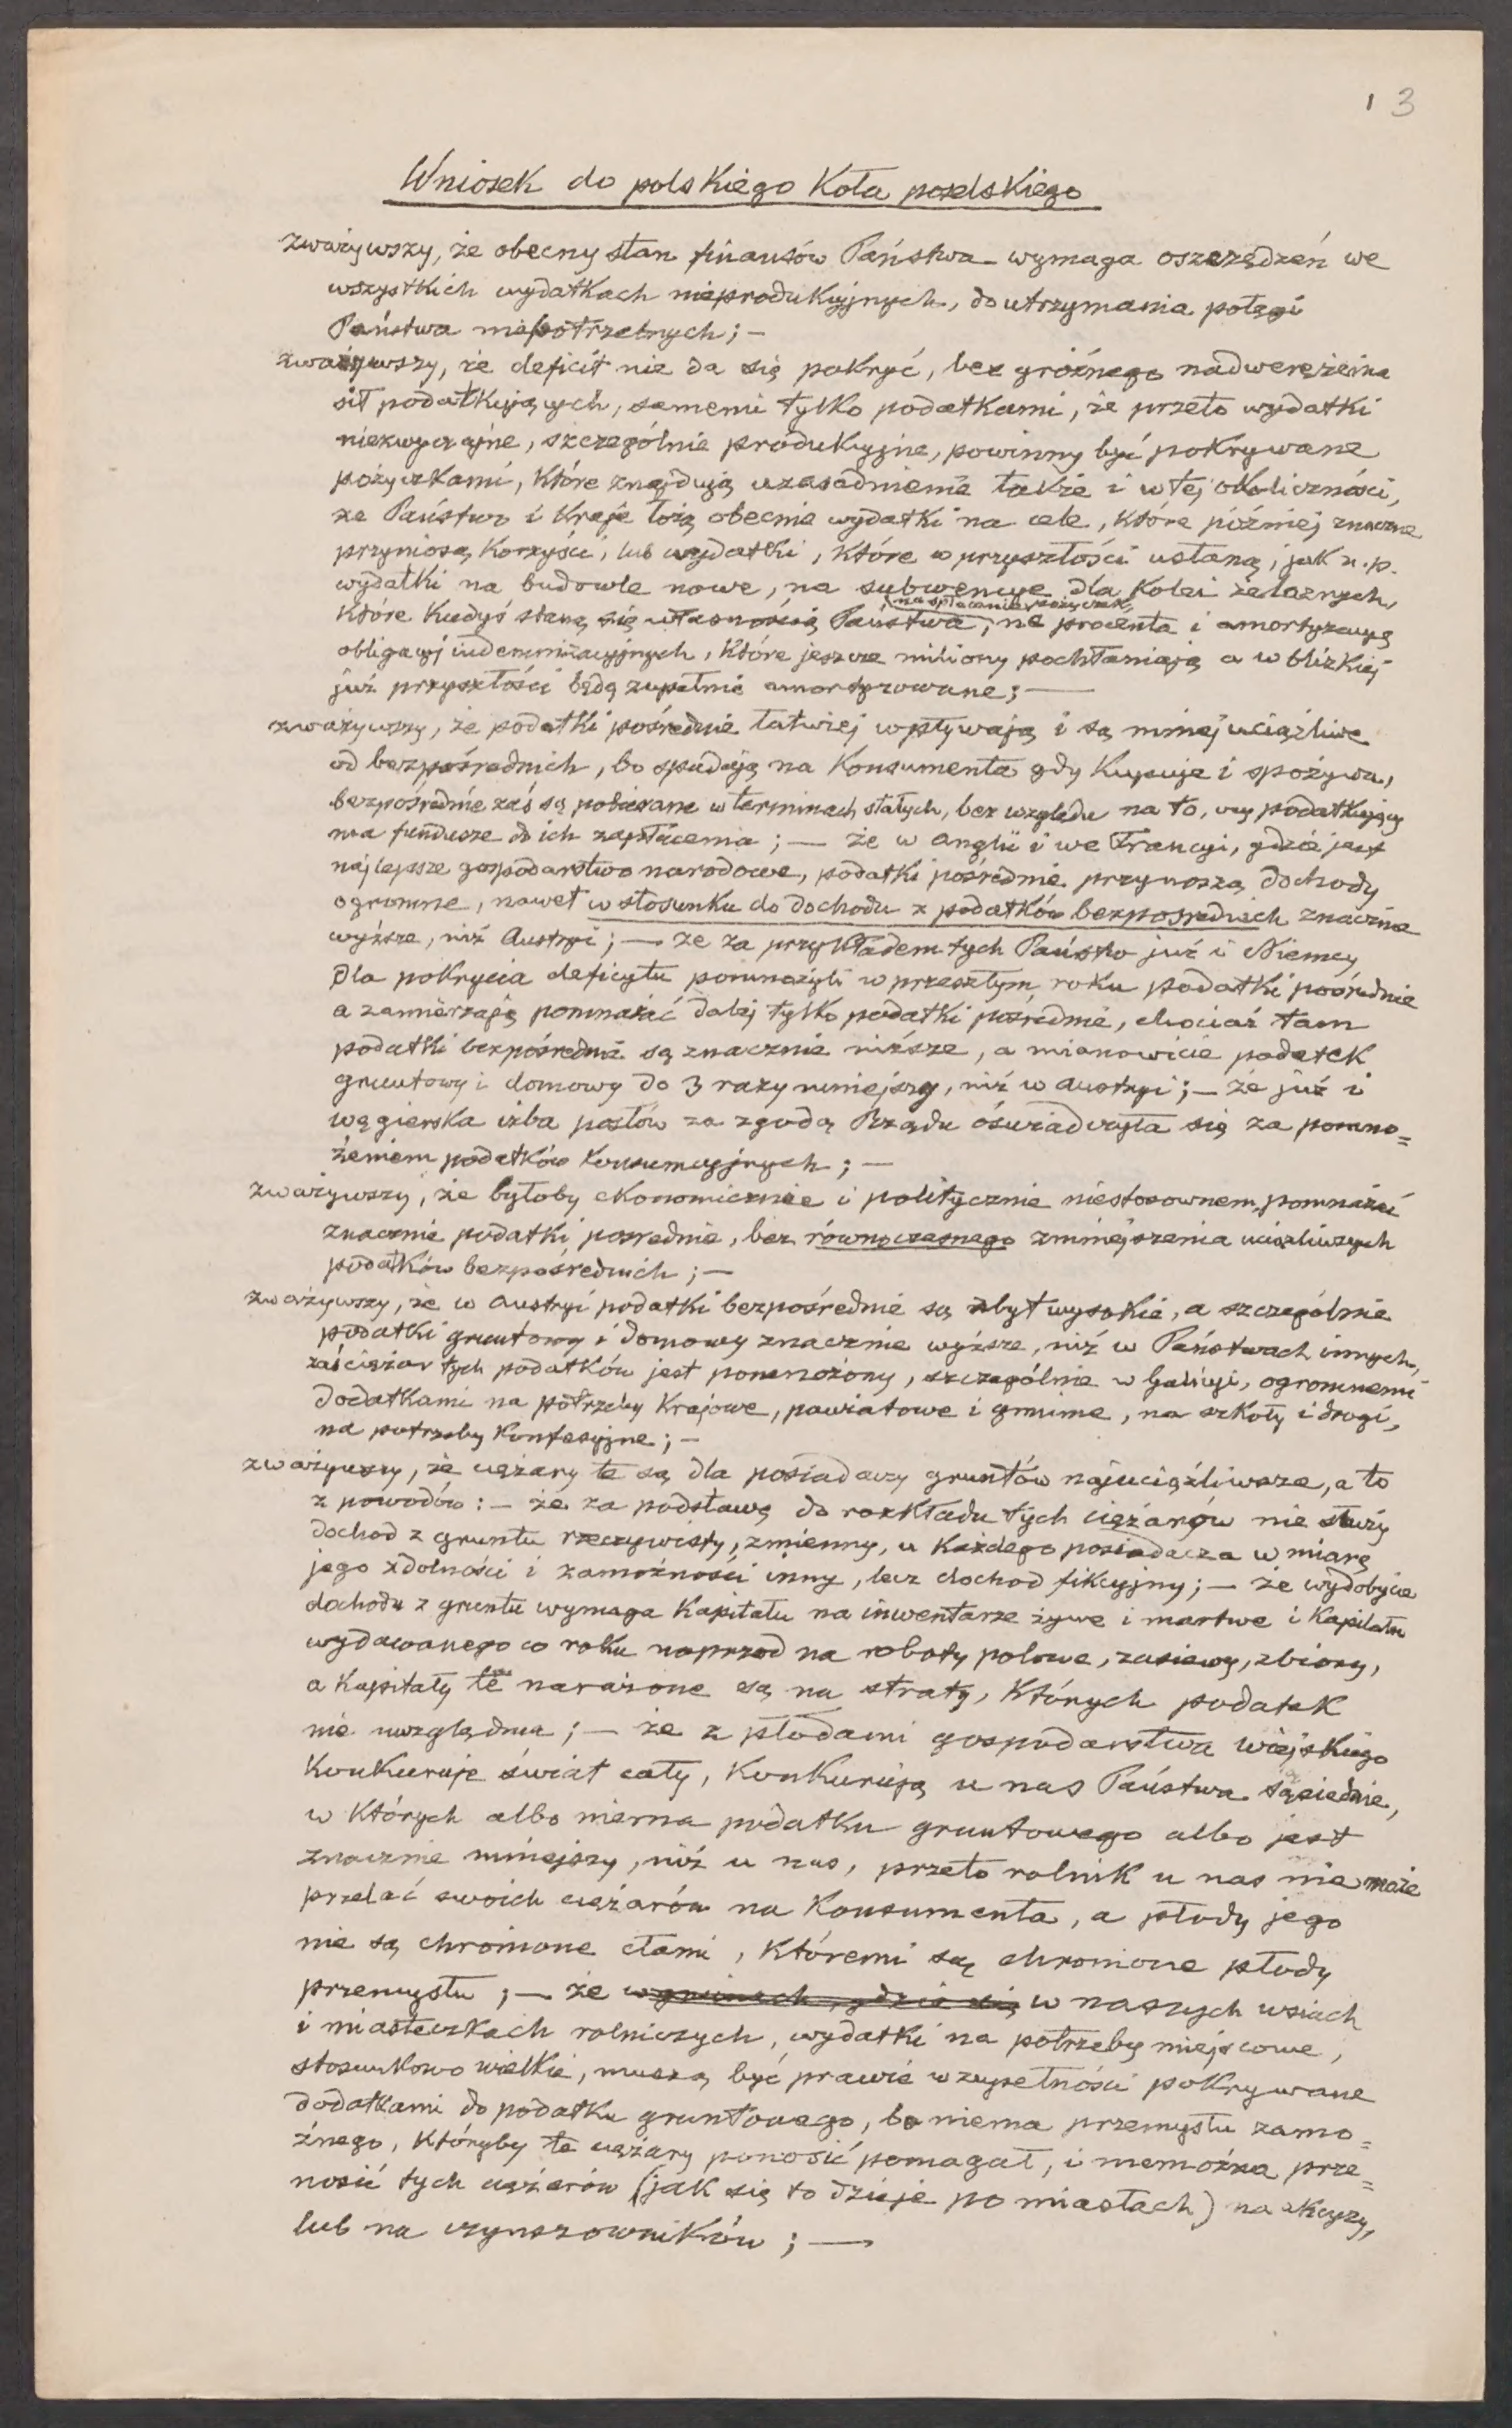 1 3
Wniosek do polskiego Koła poselskiego
zważywszy, że obecny stan finansów Państwa wymaga oszczędzeń we
wszystkich wydatkach nieprodukcyjnych, do utrzymania potęgi
Państwa niepotrzebnych; —
zważywszy, że deficit nie da się pokryć, bez groźnego nadwerężenia
sił podatkujących, samemi tylko podatkami, że przeto wydatki
niezwyczajne, szczególnie produkcyjne, powinny być pokrywane
pożyczkami, które znajdują uzasadnienie także i w tej okoliczności,
że Państwo i Kraje łożą obecnie wydatki na cele, które później znaczne
przyniosą korzyści, lub wydatki, które w przyszłości ustaną, jak n.p.
wydatki na budowle nowe, na subwencye dla Kolei żelaznych,
które kiedyś staną się własnością Państwa, na spłacanie pożyczek, na procenta i amortyzacyę
obligacyj indemnizacyjnych, które jeszcze miliony pochłaniają a w blizkiej
już przyszłości będą zupełnie amortyzowane; —
zważywszy, że podatki pośrednie łatwiej wpływają i są mniej uciążliwe
od bezpośrednich, bo spadają na Konsumenta gdy Kupuje i spożywa,
bezpośrednie zaś są pobierane w terminach stałych, bez względu na to, czy podatkujący
ma fundusze do ich zapłacenia; — że w Anglii i we Francyi, gdzie jest
najlepsze gospodarstwo narodowe, podatki pośrednie przynoszą dochody
ogromne, nawet w stosunku do dochodu z podatków bezpośrednich znacznie
wyższe, niż Austryi; — że za przykładem tych Państw już i Niemcy
dla pokrycia deficytu pomnożyli w przeszłym roku podatki pośrednie
a zamierzają pomnażać dalej tylko podatki pośrednie, chociaż tam
podatki bezpośrednie są znacznie niższe, a mianowicie podatek
gruntowy i domowy do 3 razy mniejszy, niż w Austryi; — że już i
węgierska izba posłów za zgodą Rządu oświadczyła się za pomno=
żeniem podatków konsumcyjnych; —
zważywszy, że byłoby ekonomicznie i politycznie niestosownem, pomnażać
znacznie podatki pośrednie, bez równoczesnego zmniejszenia uciążliwszych
podatków bezpośrednich; —
zważywszy, że w Austryi podatki bezpośrednie są zbyt wysokie, a szczególnie
podatki gruntowy i domowy znacznie wyższe, niż w Państwach innych,
zaś ciężar tych podatków jest pomnożony, szczególnie w Galicyi, ogromnemi
dodatkami na potrzeby Krajowe, powiatowe i gminne, na szkoły i drogi,
na potrzeby Konfesyjne; —
zważywszy, że ciężary te są dla posiadaczy gruntów najuciążliwsze, a to
z powodów: — że za podstawę do rozkładu tych ciężarów nie służy
dochod z gruntu rzeczywisty, zmienny, u Każdego posiadacza w miarę
jego zdolności i zamożności inny, lecz dochod fikcyjny; — że wydobycie
dochodu z gruntu wymaga Kapitału na inwentarze żywe i martwe i Kapitału
wydawanego co roku naprzod na roboty polowe, zasiewy, zbiory,
a Kapitały te narażone są na straty, Których podatek
nie uwzględnia; — że z płodami gospodarstwa wiejskiego
Konkuruje świat cały, Konkurują u nas Państwa sąsiednie,
w Których albo niema podatku gruntowego albo jest
znacznie mniejszy, niż u nas, przeto rolnik u nas nie może
przelać swoich ciężarów na Konsumenta, a płody jego
nie są chronione cłami, Któremi są chronione płody
przemysłu; — że w gminach, gdzie się w naszych wsiach
i miasteczkach rolniczych, wydatki na potrzeby miejscowe,
stosunkowo wielkie, muszą być prawie w zupełności pokrywane
dodatkami do podatku gruntowego, bo niema przemysłu zamo=
żnego, Któryby te ciężary ponosić pomagał, i niemożna prze=
nosić tych ciężarów (jak się to dzieje po miastach) na akcyzy,
lub na czynszowników; —